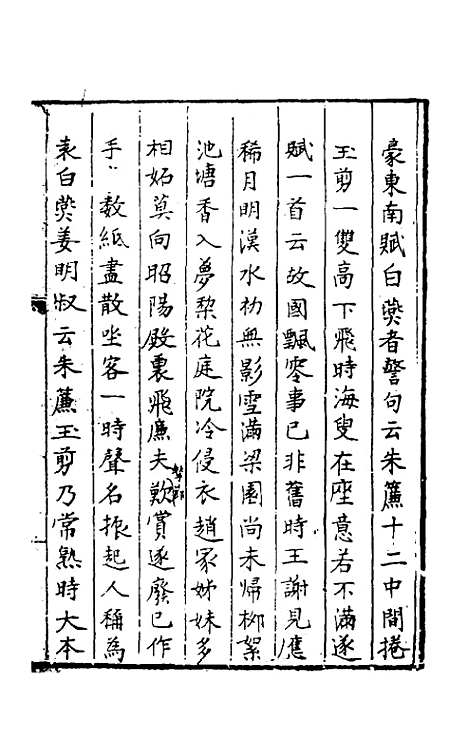 豪東南賦白燕者警句云朱簾十二中間捲
玉剪一雙高下飛時海叟在座意若不滿遂
賦一首云故國飄零事已非舊時王謝見應
稀月明漢水初無影雪滿梁園尚未歸柳絮
池塘香入夢梨花庭院冷侵衣趙家姊妹多
相妬莫向昭陽殿裏飛廉夫擊節歎賞遂廢已作
手〻數紙盡散坐客一時聲名振起人稱為
袁白燕姜明叔云朱簾玉剪乃常熟時大本